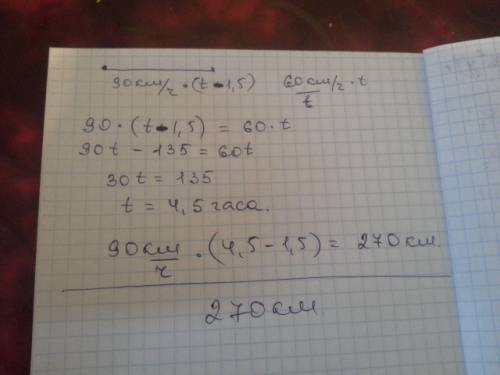 90км/ч · (t-1,5)   60км/ч · t
t
90 · (t-1,5) = 60 · t
90t - 135 = 60t
30t = 135
t = 4,5 часа.
90 км/ч · (4,5 - 1,5) = 270 км.
270 км